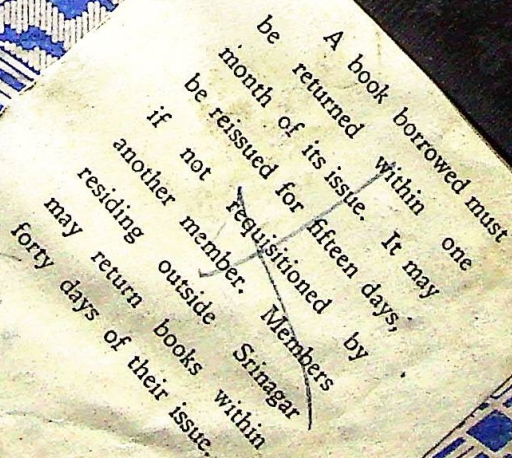 A book borrowed must
be returned within one
month of its issue. It may
be reissued for fifteen days,
if not requisitioned by
another member. Members
residing outside Srinagar
may return books within
forty days of their issue.